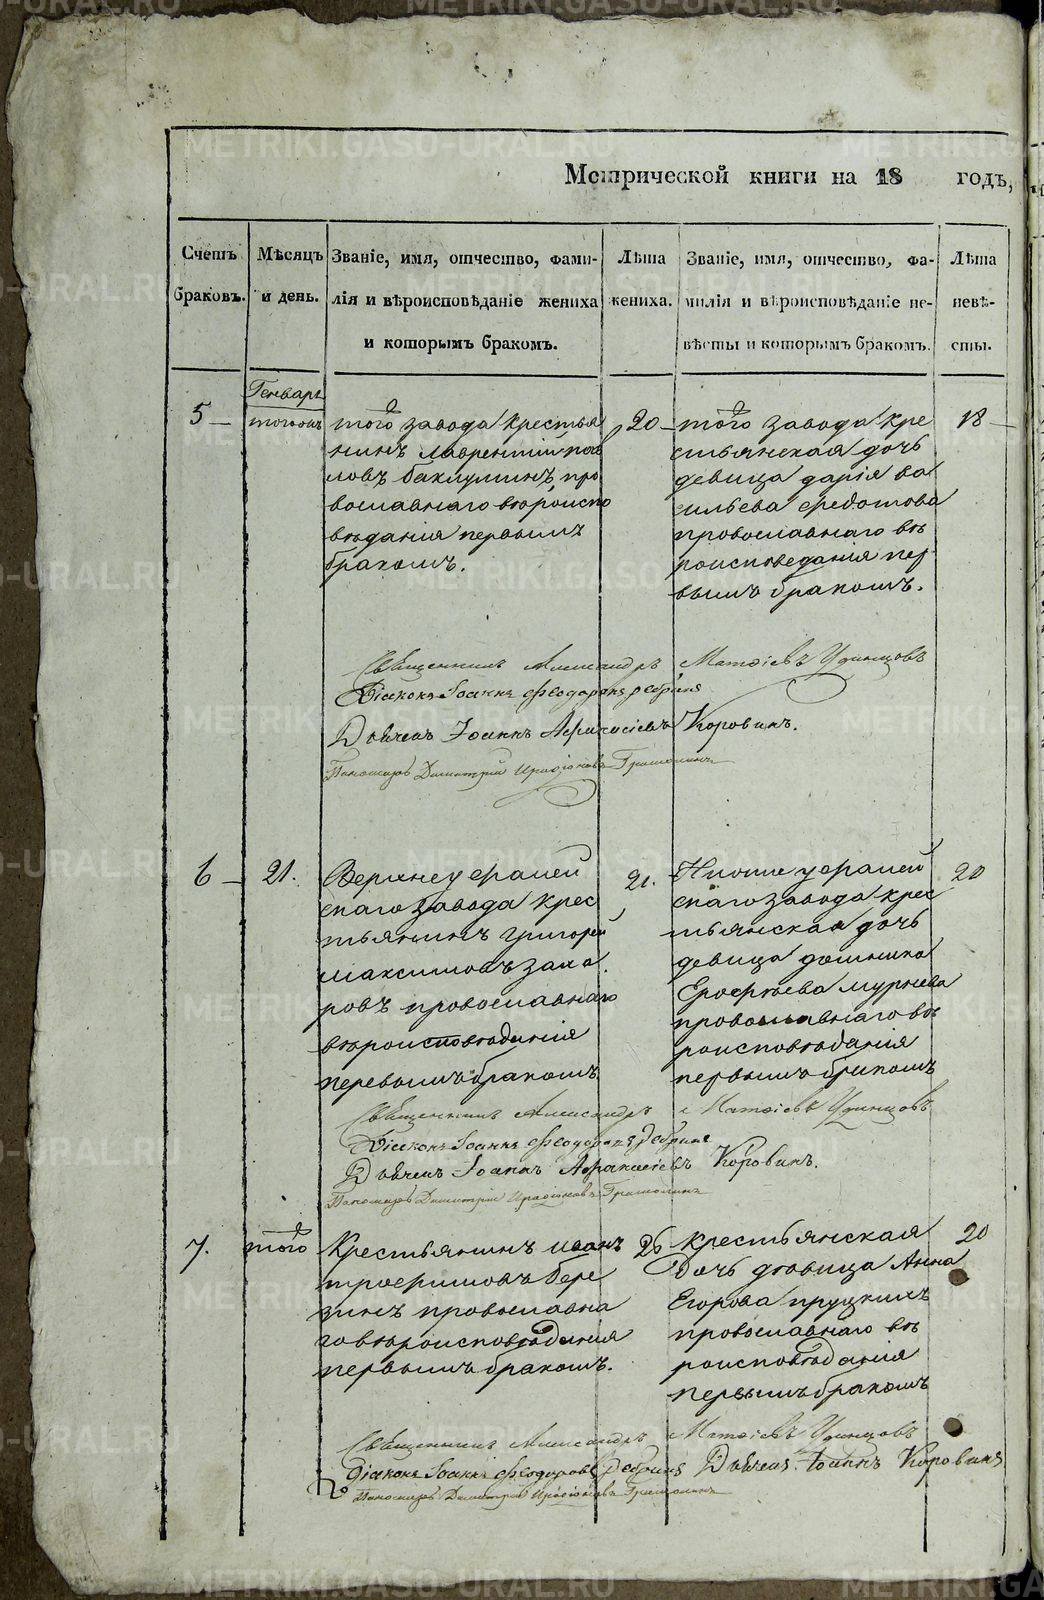 METRIKI.GASO-URAL.RU
Метрической книги на 18 годъ,
Счетъ браковъ.
Мѣсяцъ и день.
Званіе, имя, отчество, фами-
лія и вѣроисповѣданіе жениха
и которымъ бракомъ.
Лѣта
жениха.
Званіе, имя, отчество, фа-
милія и вѣроисповѣданіе не-
вѣсты и которымъ бракомъ.
Лѣта
невѣ-
сты.
Генварь
5
того завода крестья
нинъ лаврентій
ловъ баклулинъ, про
вославнаго вѣроиспо
вѣданія первымъ
бракомъ.
20
того завода кре
стьянская дочь
девица дарія ва
сильева федотова
провославнаго вѣ
роисповеданія пер
вымъ бракомъ.
18
Священникъ Александръ Матѳіевъ Удинцовъ
Діаконъ Іоаннъ Ѳеодоровъ
Дьячекъ Іоаннъ Афанасіевъ Коровинъ.
Пономарь Димитрій
6
21.
Верхнеуфалей
скаго завода крес
тьянинъ григорей
максимовъ заха
ровъ провославнаго
вѣроисповѣданія
перевымъ бракомъ
21.
Нижнеуфалей
скаго завода крес
тьянская дочь
девица домника
Ерофѣева
провославнаго вѣ
роисповѣданія
первымъ бракомъ
20
Священникъ Александръ Матѳіевъ Удинцовъ
Діаконъ Іоаннъ Ѳеодоровъ
Дьячекъ Іоаннъ Афанасіевъ Коровинъ.
Пономарь Димитрій
7.
того
Крестьянинъ иванъ
трофимовъ бере
зинъ провославна
го вѣроисповѣданія
первымъ бракомъ.
26
крестьянская
дочь дѣвица Анна
Егорова пруцкихъ
провославнаго вѣ
роисповѣданія
первымъ бракомъ
20
Священникъ Александръ Матѳіевъ Удинцовъ
Діаконъ Іоаннъ Ѳеодоровъ Дьячекъ Іоаннъ Коровинъ
Пономарь Димитрій